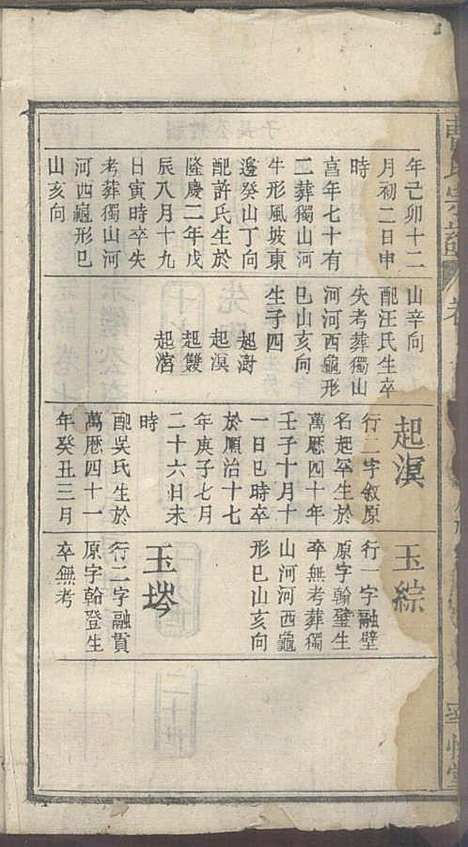 年己卯十二
月初二日申
時
享年七十有
二葬獨山河
牛形風坡東
邊癸山丁向
配許氏生於
隆慶二年戊
辰八月十九
日寅時卒失
考葬獨山河
河西龜形巳
山亥向
山辛向
配汪氏生卒
失考葬獨山
河河西龜形
巳山亥向
生子四
起澍
起溟
起鸑
起滔
起溟
行二字敘原
名起罕生於
萬厯四十年
壬子十月十
一日巳時卒
於順治十七
年庚子七月
二十六日未
時
配吳氏生於
萬厯四十一
年癸丑三月
玉綜
行一字融壁
原字翰璧生
卒無考葬獨
山河河西龜
形巳山亥向
玉琌
行二字融貫
原字翰登生
卒無考